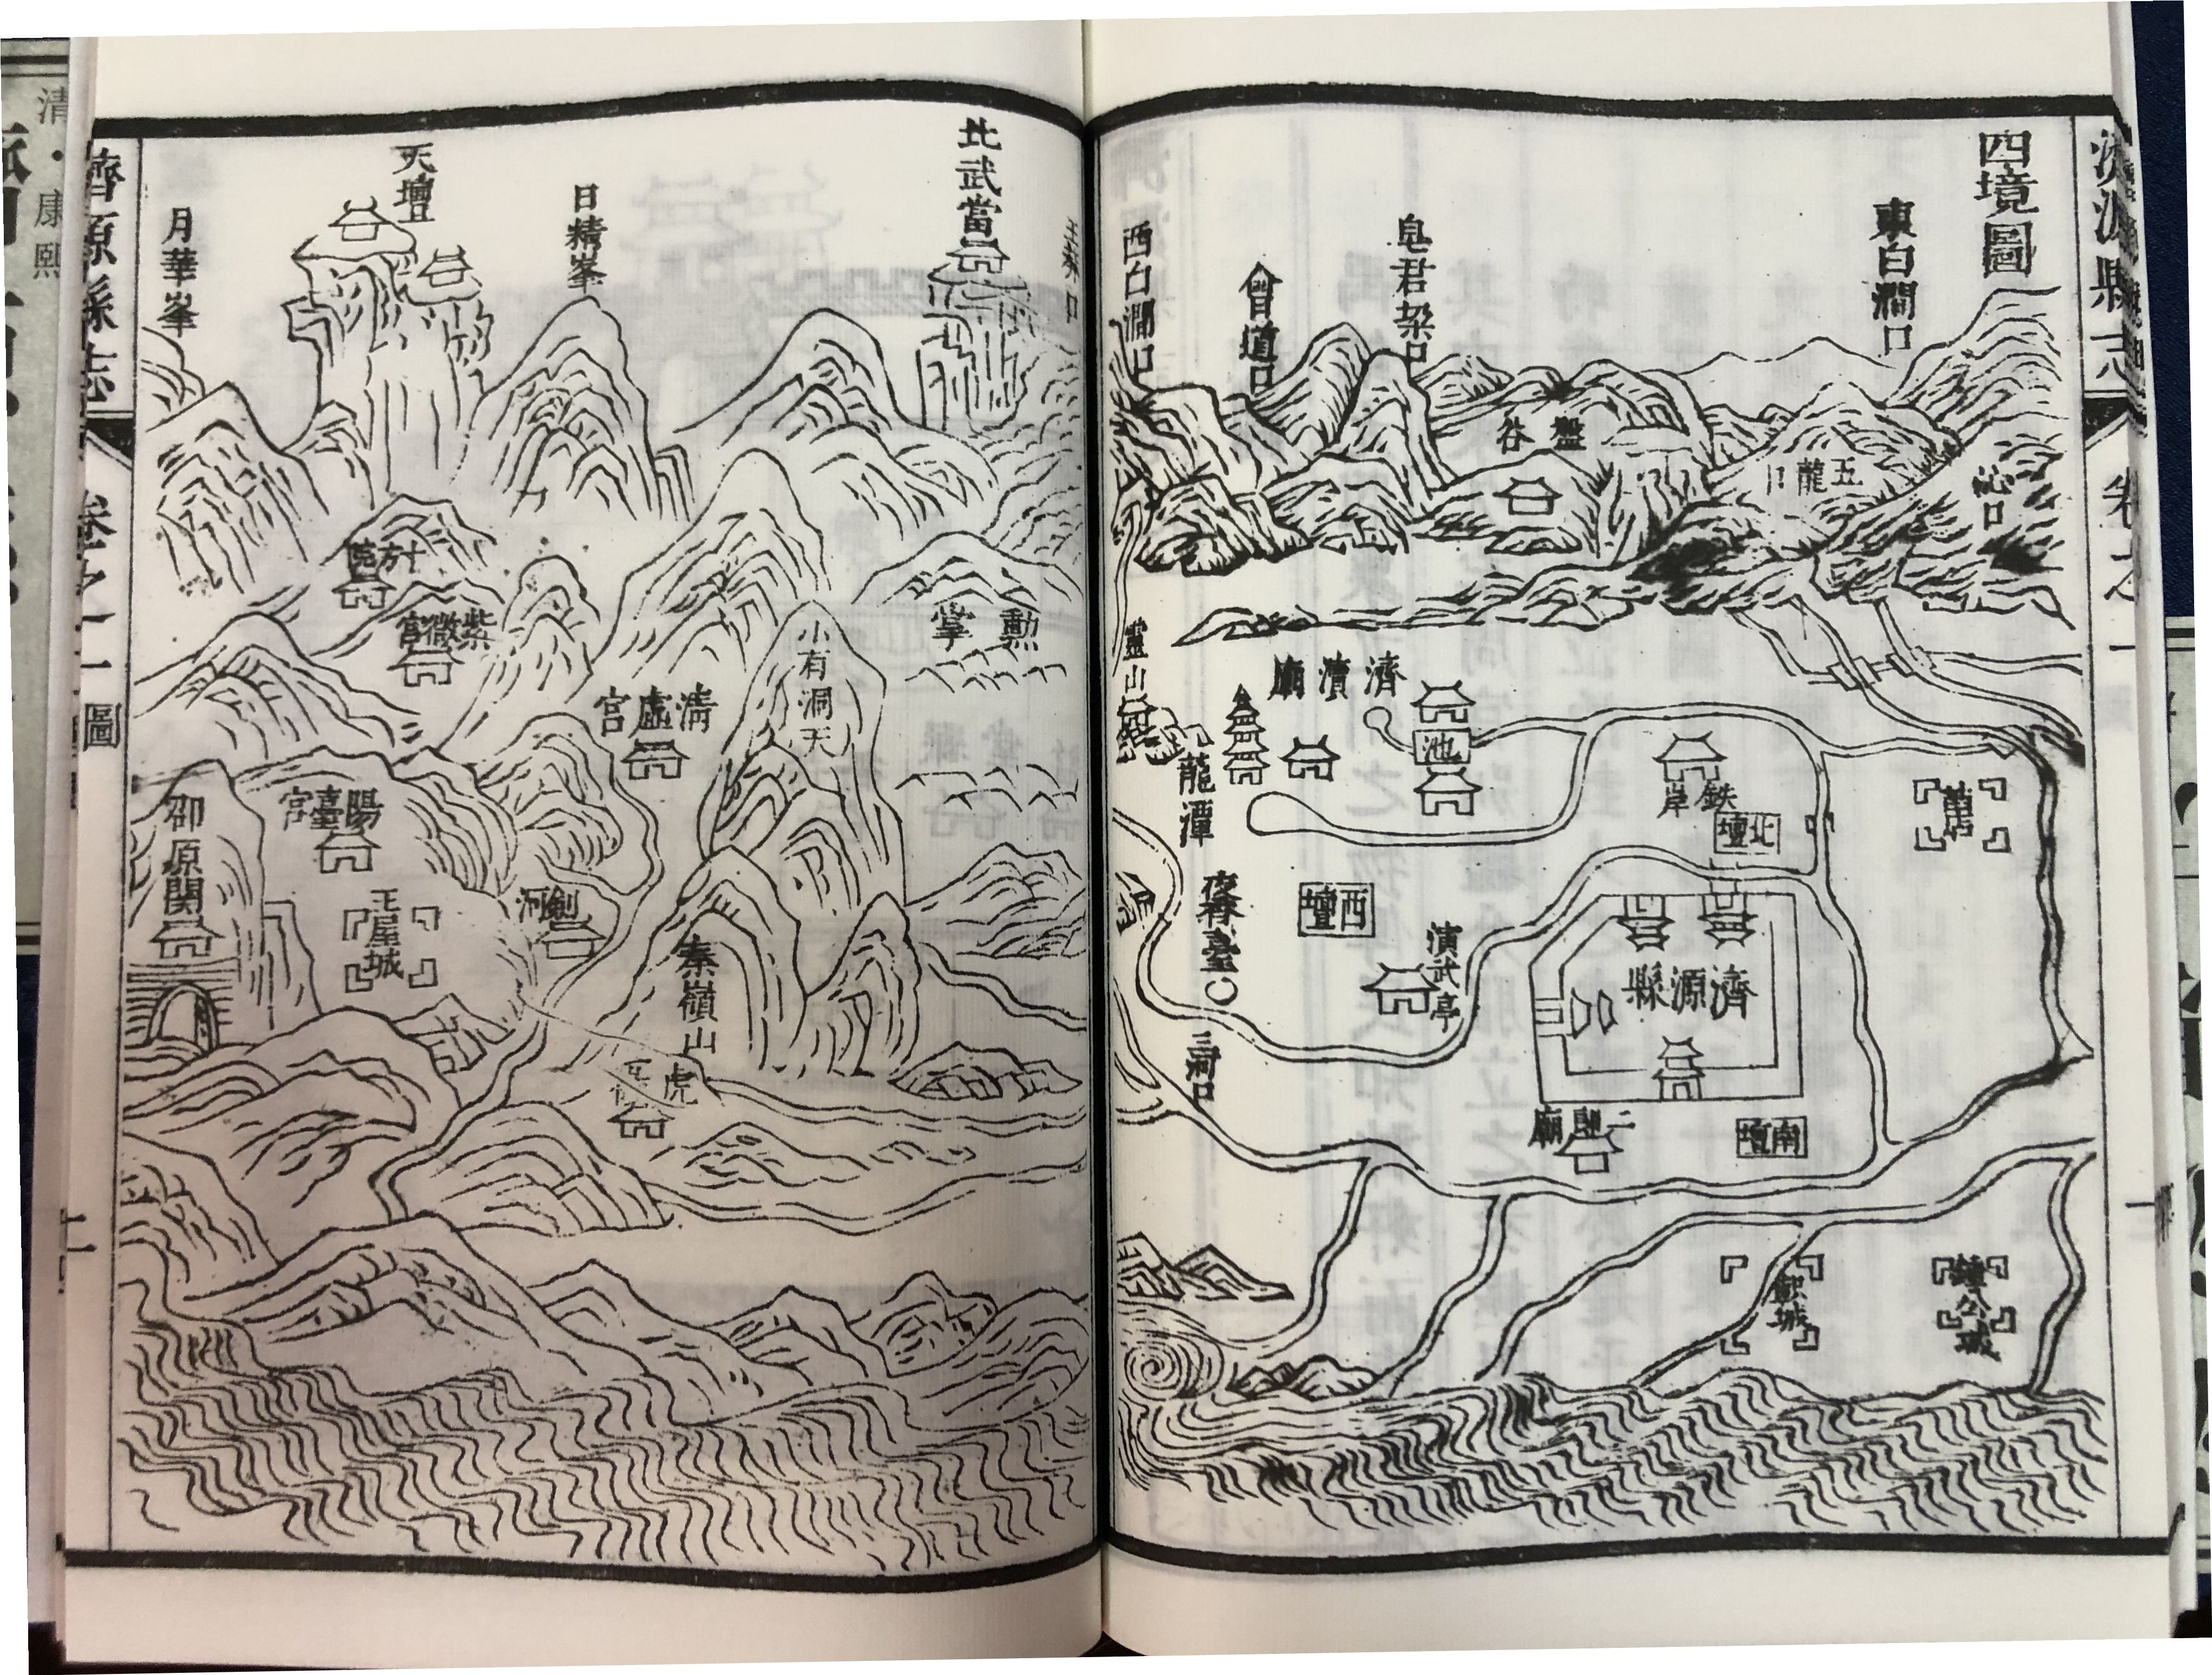 濟源縣志
卷之一
四境圖
東白澗口
沁口
五龍口
盤谷
皂君梁口
會道口
西白澗口
濟瀆廟
池
靈山
龍潭
鉄岸
北壇
西壇
演武亭
濟源縣
三河口
二郎廟
南壇
鍾公城
城
北武當
日精峯
天壇
月華峯
勳掌
小有洞天
十方院
紫微宮
清虛宮
陽臺宮
邵原関
王屋城
劍河
秦嶺山
虎
濟源縣志
卷之一
圖
清·康熙